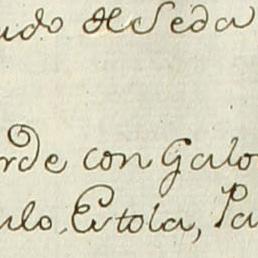 udo de Seda
rde con Galo
ulo, Estola, Pa